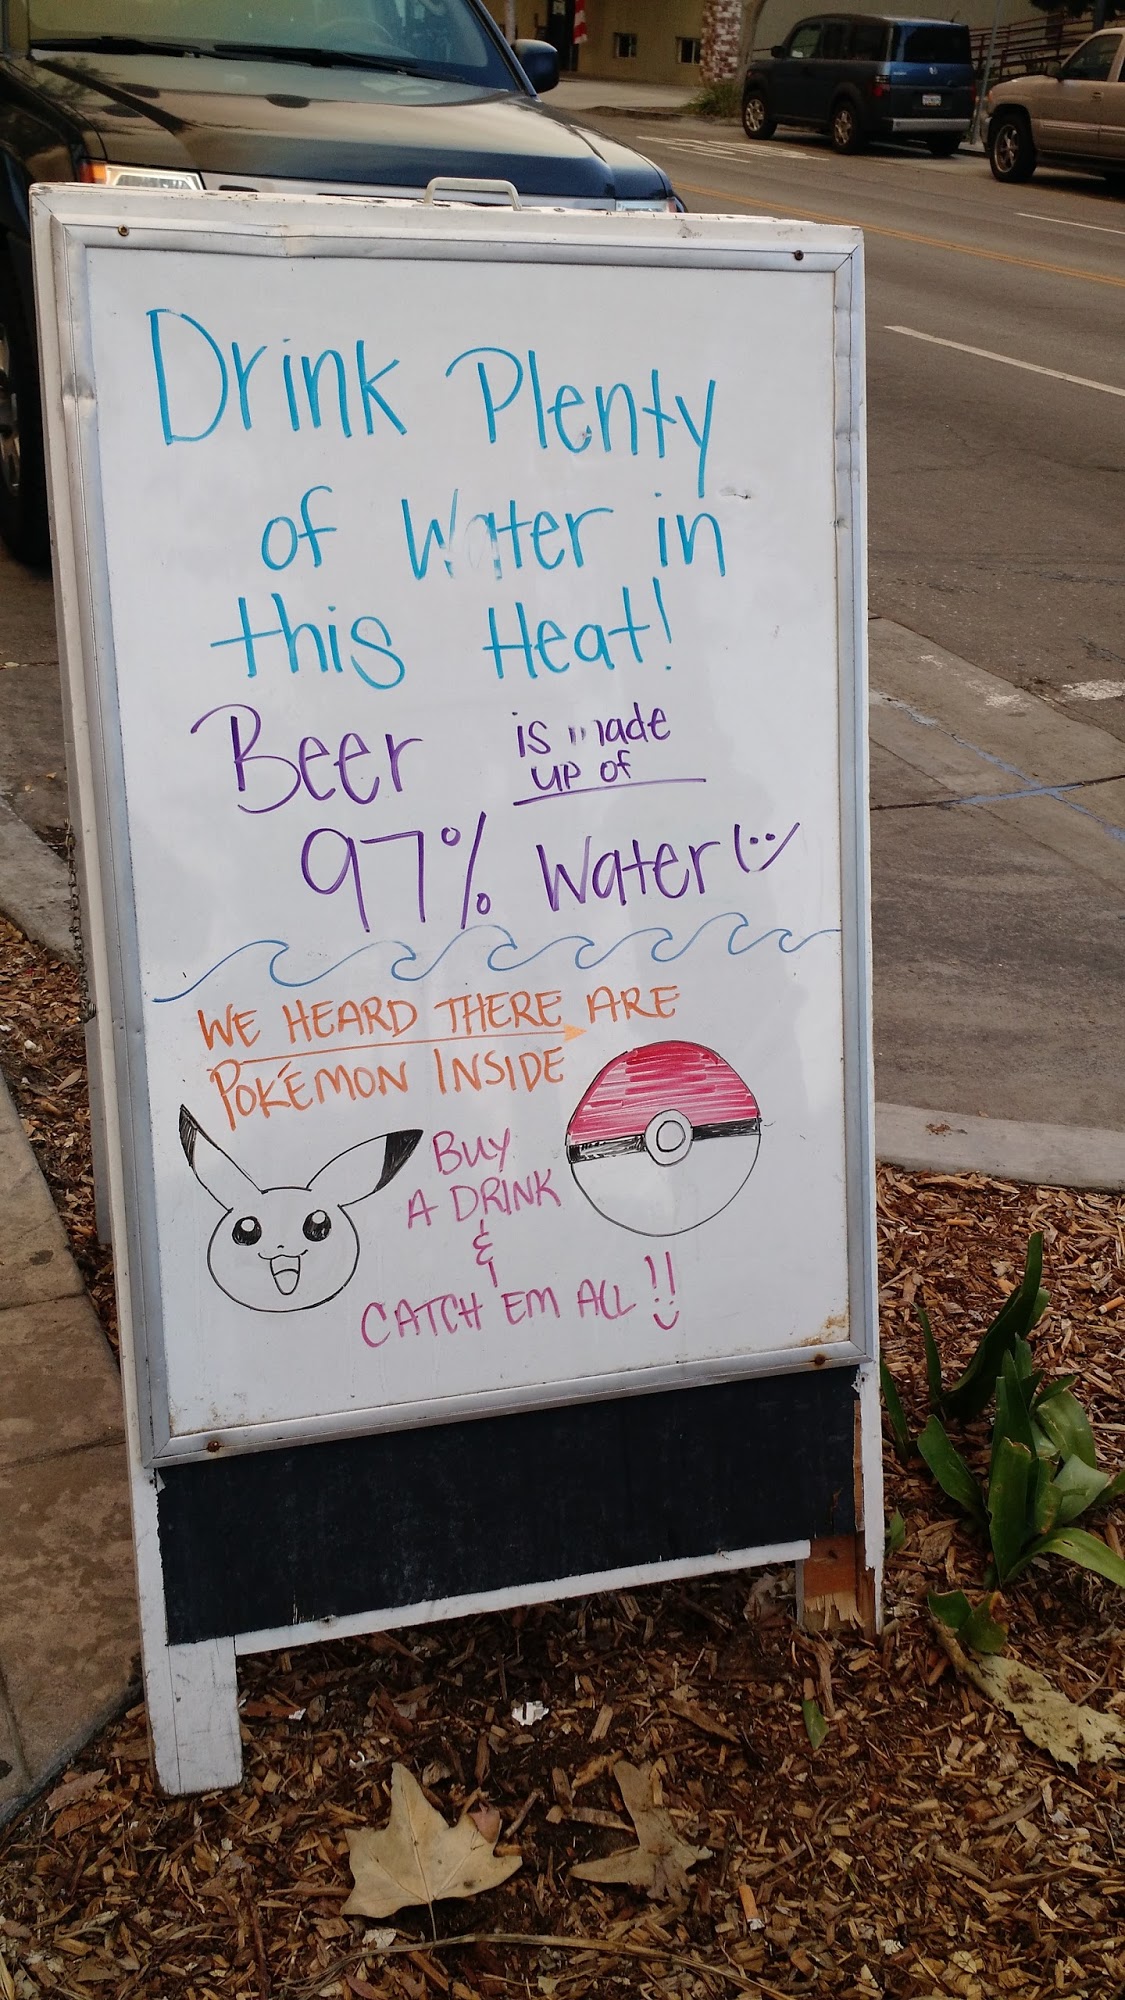 Drink Plenty
of Water in
this Heat!
Beer is made
up of
97% Water
WE HEARD THERE ARE
POKÉMON INSIDE
BUY
A DRINK
&
CATCH EM ALL!!